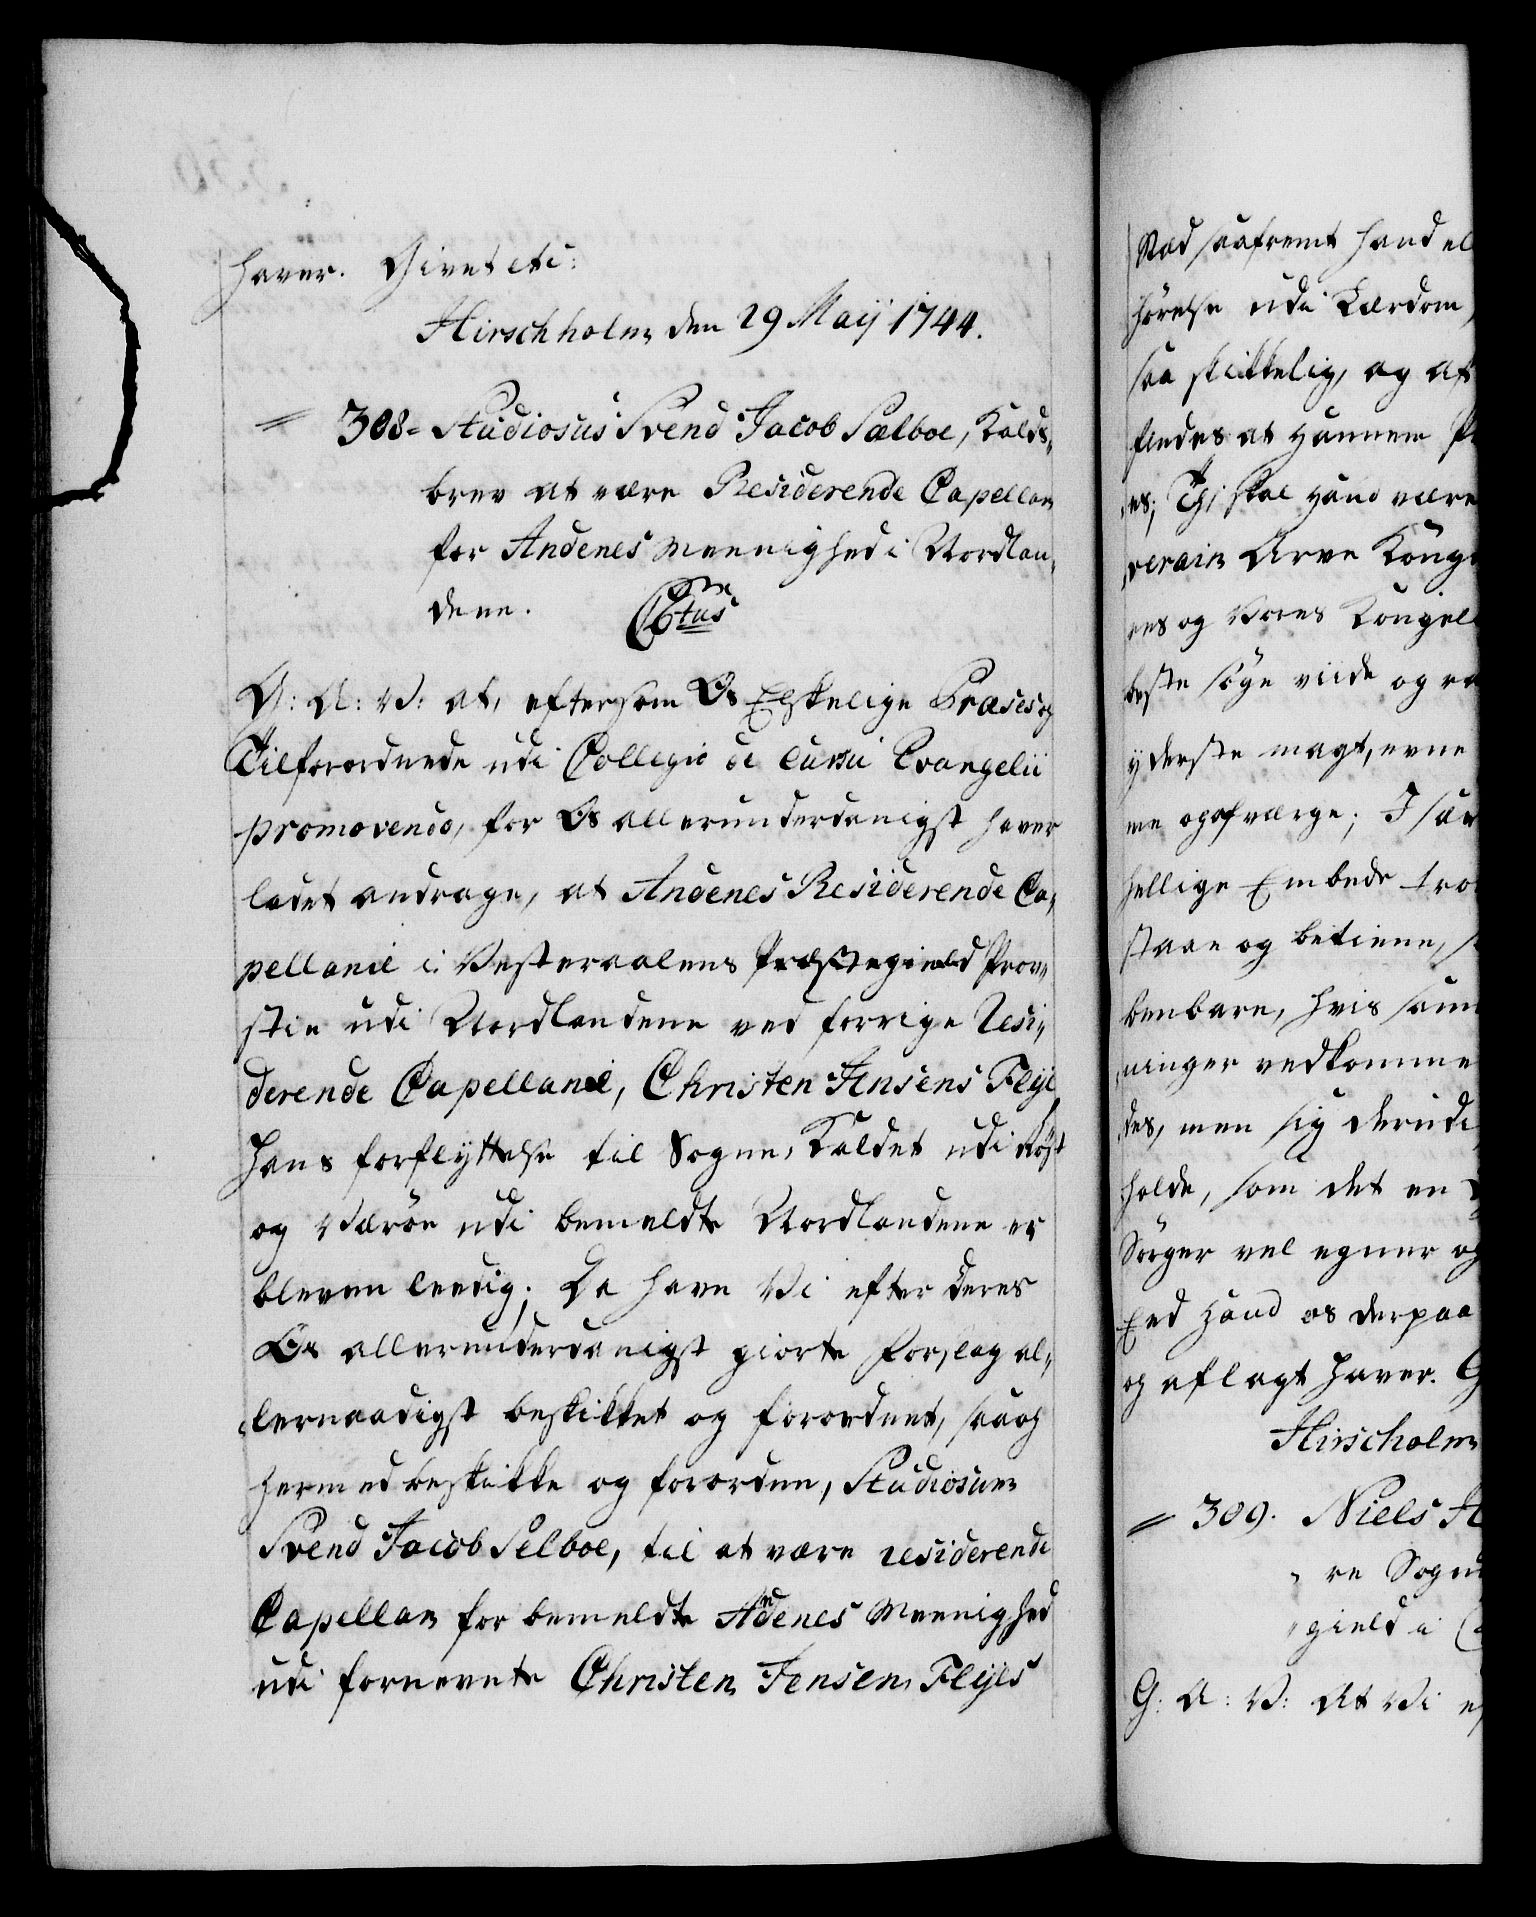 haver. Givet etc:
Hirschholm den 29 Maij 1744.
308 - Studiosus Svend Jacob Sælboe, Kalds-
brev at være Residerende Capellan
for Andenes Meenighed i Nordlan-
dene.
G: A: V: at, eftersom Os Elskelige Præses og
Tilforordnede udi Collegio de cursu Evangelii
promovendo, for Os allerunderdanigst haver
ladet andrage, at Andenes Residerende Ca-
pellanie i Vesteraalens Provst
stie udi Nordlandene ved forrige Resi-
derende Capellanie, Christen Jensens Flye
hans forflyttelse til Sogne-Kaldet udi Røst
og Værøe udi bemeldte Nordlandene er
bleven leedig; Da have Vi efter deres
Os allerunderdanigst giorte forslag al-
lernaadigst beskikket og forordnet, saa og
hermed beskikke og forordne, Studiosum
Svend Jacob Selboe, til at være residerende
Capellan for bemeldte Andenes Meenighed
udi fornevnte Christen Jensen Flyes
Stæd saafremt hand el
hørelse udi Lærdom,
saa skikkelig, og af
findes at hannem
es; Thi skal hand være
verain Arve Konge
ens og Vores Kongel
beste søge viide og ra
yderste magt, evne
me og afværge; I sær
hellige Embede tro
staae og betiene,
benbare, hvis
ninger vedkomme
des, men sig derudi
holde, som det en
Sørger vel egner og
Eed hand os derpaa
og aflagt haver. G
Hirscholm
309. Niels H
re Sogne
gield i
G: A: V: At Vi ef